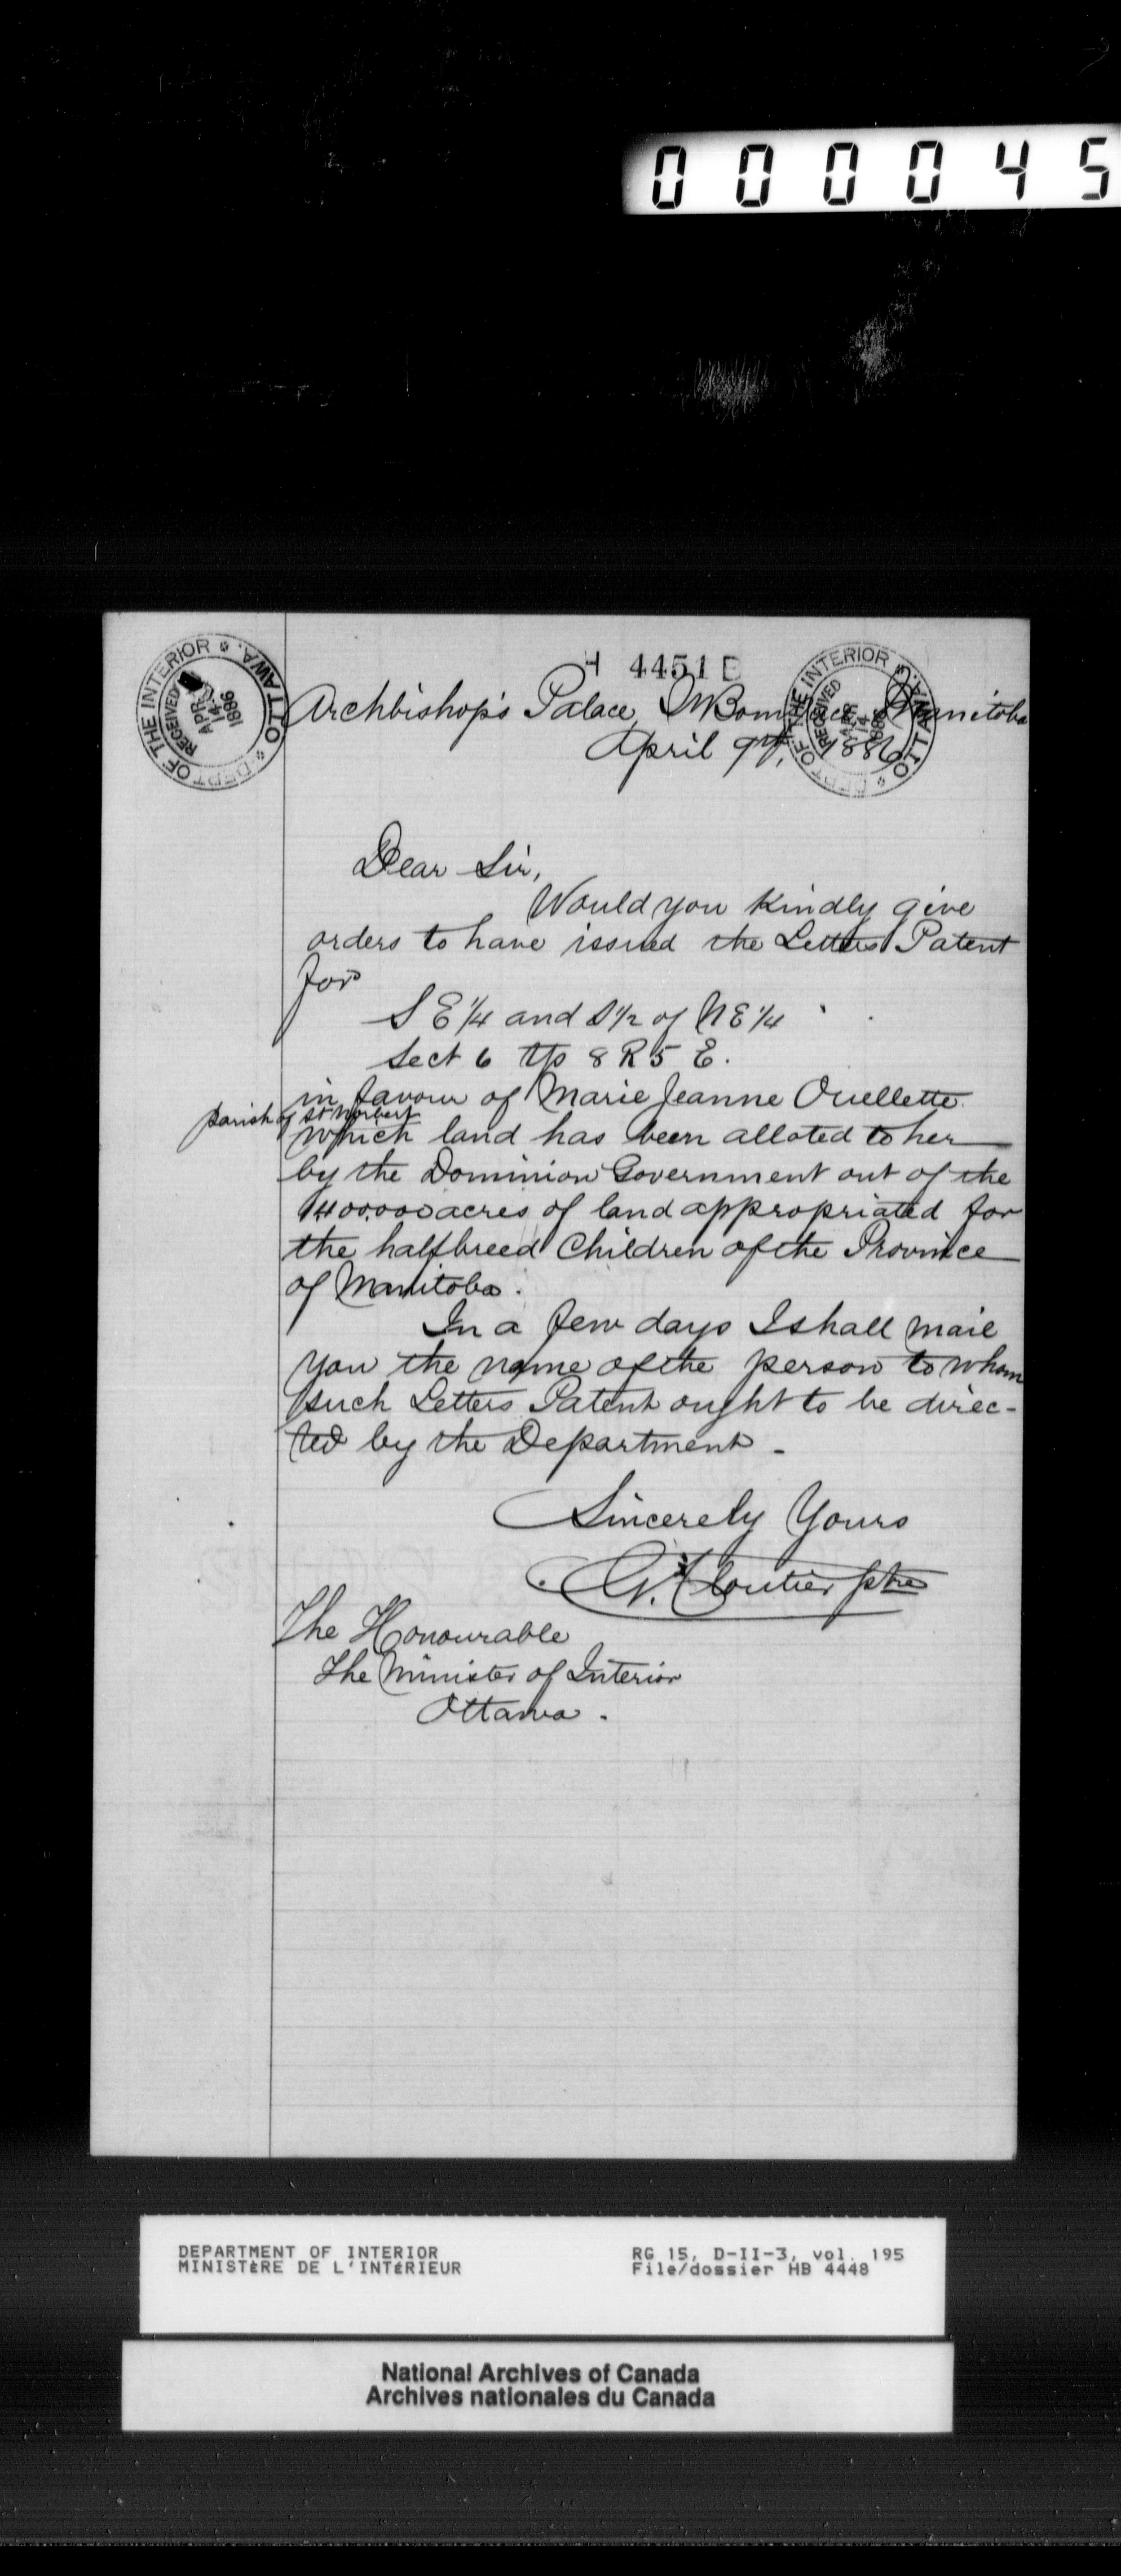 000045
H 4451 E
DEPT OF THE INTERIOR * OTTAWA.
RECEIVED
APR
14
1886
DEPT OF THE INTERIOR * OTTAWA.
RECEIVED
APR
14
1886
Archbishop's Palace, St Boniface, Manitoba
April 9th, 1886
Dear Sir,
Would you kindly give
orders to have issued the Letters Patent
for
S E 1/4 and S 1/2 of N E 1/4
Sect 6 Tp 8 R 5 E.
in favour of Marie Jeanne Ouellette
parish of St Norbert
which land has been alloted to her
by the Dominion Government out of the
1400.000 acres of land appropriated for
the halfbreed Children of the Province
of Manitoba.
In a few days I shall mail
you the name of the person to whom
such Letters Patent ought to be direc-
ted by the Department -
Sincerely Yours
G. Cloutier ptre
The Honourable
The Minister of Interior
Ottawa.
DEPARTMENT OF INTERIOR
MINISTÈRE DE L'INTÉRIEUR
RG 15, D-II-3, vol. 195
File/dossier HB 4448
National Archives of Canada
Archives nationales du Canada